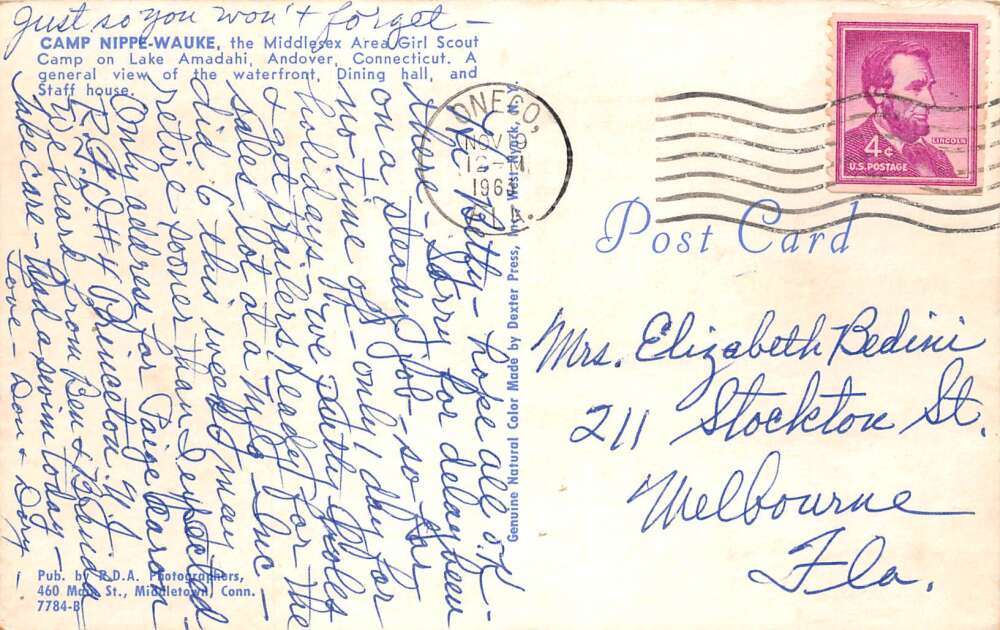 Just so you won't forget -
CAMP NIPPE-WAUKE, the Middlesex Area Girl Scout
Camp on Lake Amadahi, Andover, Connecticut. A
general view of the waterfront, Dining hall, and
Staff house.
Hi Betty - hope all O.K.
there - Sorry for delay been
on a steady job - so far
no time off - only day for
holidays - we paint mobiles
& get trailers ready for the
sales lot at a Mfg. Inc -
did 6 this week & may
retire sooner than I expected -
Only address for Paige Carson
R.F.D #4 Princeton, N.J.
We heard from Ben & Brenda
Take care - Had a swim today -
Love - Don & Dory !
Pub. by R.D.A. Photographers,
460 Main St., Middletown, Conn.
7784-B
Genuine Natural Color Made by Dexter Press, Inc., West Nyack, N.Y.
ONECO,
NOV 19
12-M
196
FLA.
LINCOLN
4¢
U.S. POSTAGE
Post Card
Mrs. Elizabeth Bedini
211 Stockton St.
Melbourne
Fla.